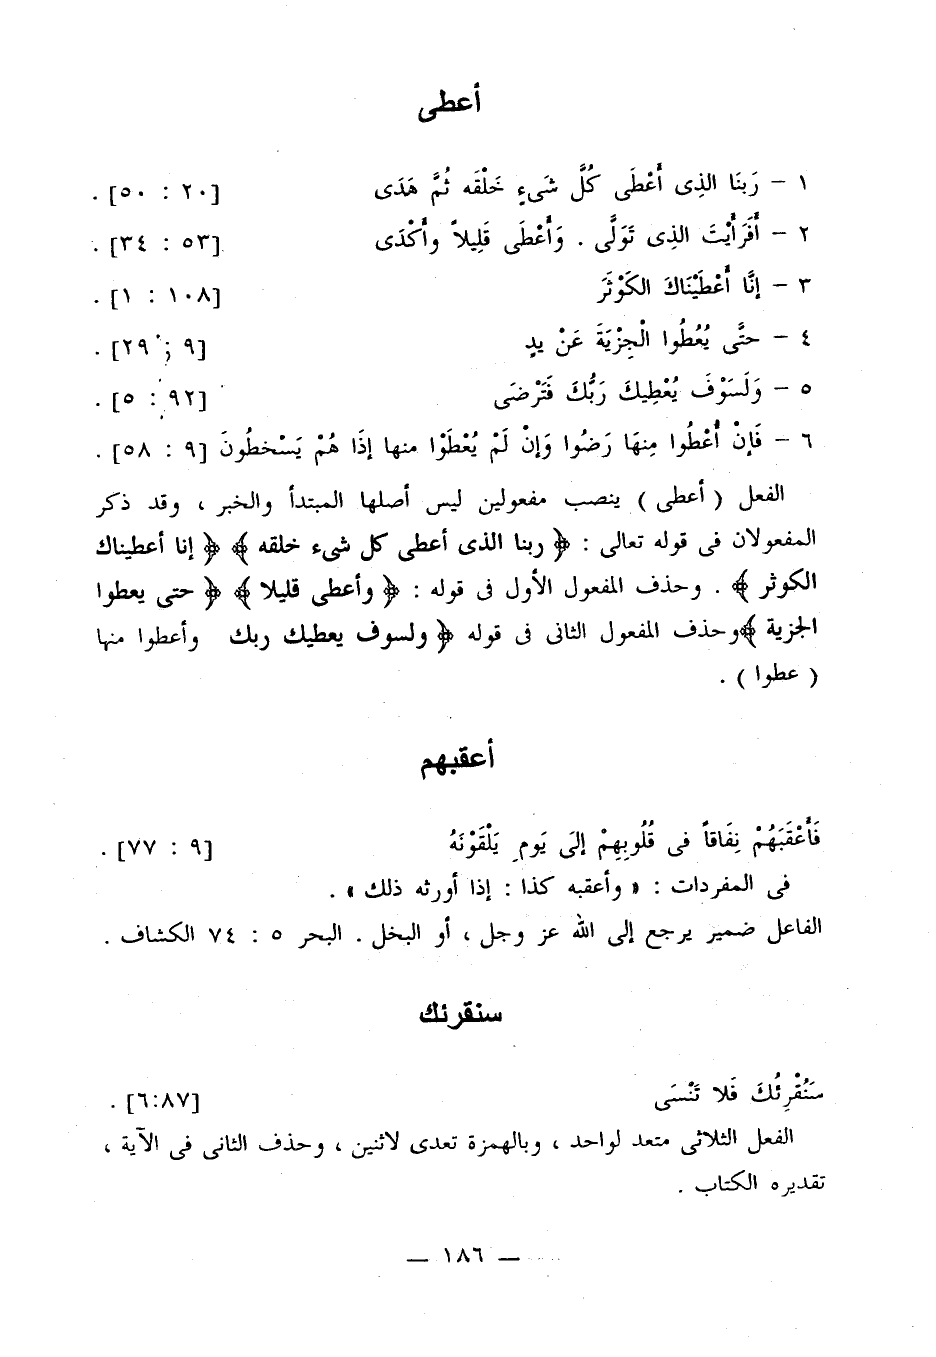 أعطى
١ – رَبَنَا الذِى أَعْطَى كُلَّ شَىءٍ خَلْقَه ثُمَّ هَدَى [٢٠ : ٥٠] .
٢ – أَفَرَأَيْتَ الذِى تَوَلَّى . وَأَعْطَى قَلِيلاً وأَكْدَى [٥٣ : ٣٤] .
٣ – إنَّا أَعْطَيْنَاكَ الكَوْثَرَ [١٠٨ : ١] .
٤ – حتَّى يُعْطُوا الْجِزْيَةَ عَنْ يدٍ [٩ : ٢٩] .
٥ – وَلَسَوْفَ يُعْطِيكَ رَبُّكَ فَتَرْضَى [٩٢ : ٥] .
٦ – فَإِنْ أُعْطُوا مِنهَا رَضُوا وَإِنْ لَمْ يُعْطَوْا منها إذَا هُمْ يَسْخطُونَ [٩ : ٥٨] .
الفعل ( أعطى ) ينصب مفعولين ليس أصلها المبتدأ والخبر ، وقد ذكر
المفعولان فى قوله تعالى : ﴿ ربنا الذى أعطى كل شىء خلقه ﴾ ﴿ إنا أعطيناك
الكوثر ﴾ . وحذف المفعول الأول فى قوله : ﴿ وأعطى قليلا ﴾ ﴿ حتى يعطوا
الجزية ﴾وحذف المفعول الثانى فى قوله ﴿ ولسوف يعطيك ربك وأعطوا منها
( عطوا ) .
أعقبهم
فَأَعْقَبَهُمْ نِفَاقاً فى قُلُوبِهِمْ إلىَ يَومِ يَلْقَوْنَهُ [٩ : ٧٧] .
فى المفردات : « وأعقبه كذا : إذا أورثه ذلك » .
الفاعل ضمير يرجع إلى الله عز وجل ، أو البخل . البحر ٥ : ٧٤ الكشاف .
سنقرئك
سَنُقْرِئُكَ فَلا تَنْسَى [٦:٨٧] .
الفعل الثلاثى متعد لواحد ، وبالهمزة تعدى لاثنين ، وحذف الثانى فى الآية ،
تقديره الكتاب .
— ١٨٦ —